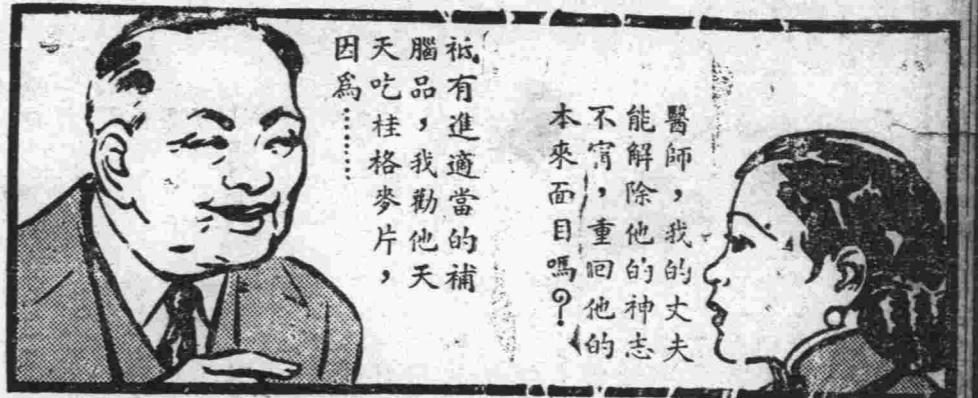 醫師，我的丈夫
能解除他的神志
不甯，重回他的
本來面目嗎？
祗有進適當的補
腦品，我勸他天
天吃桂格麥片，
因爲………